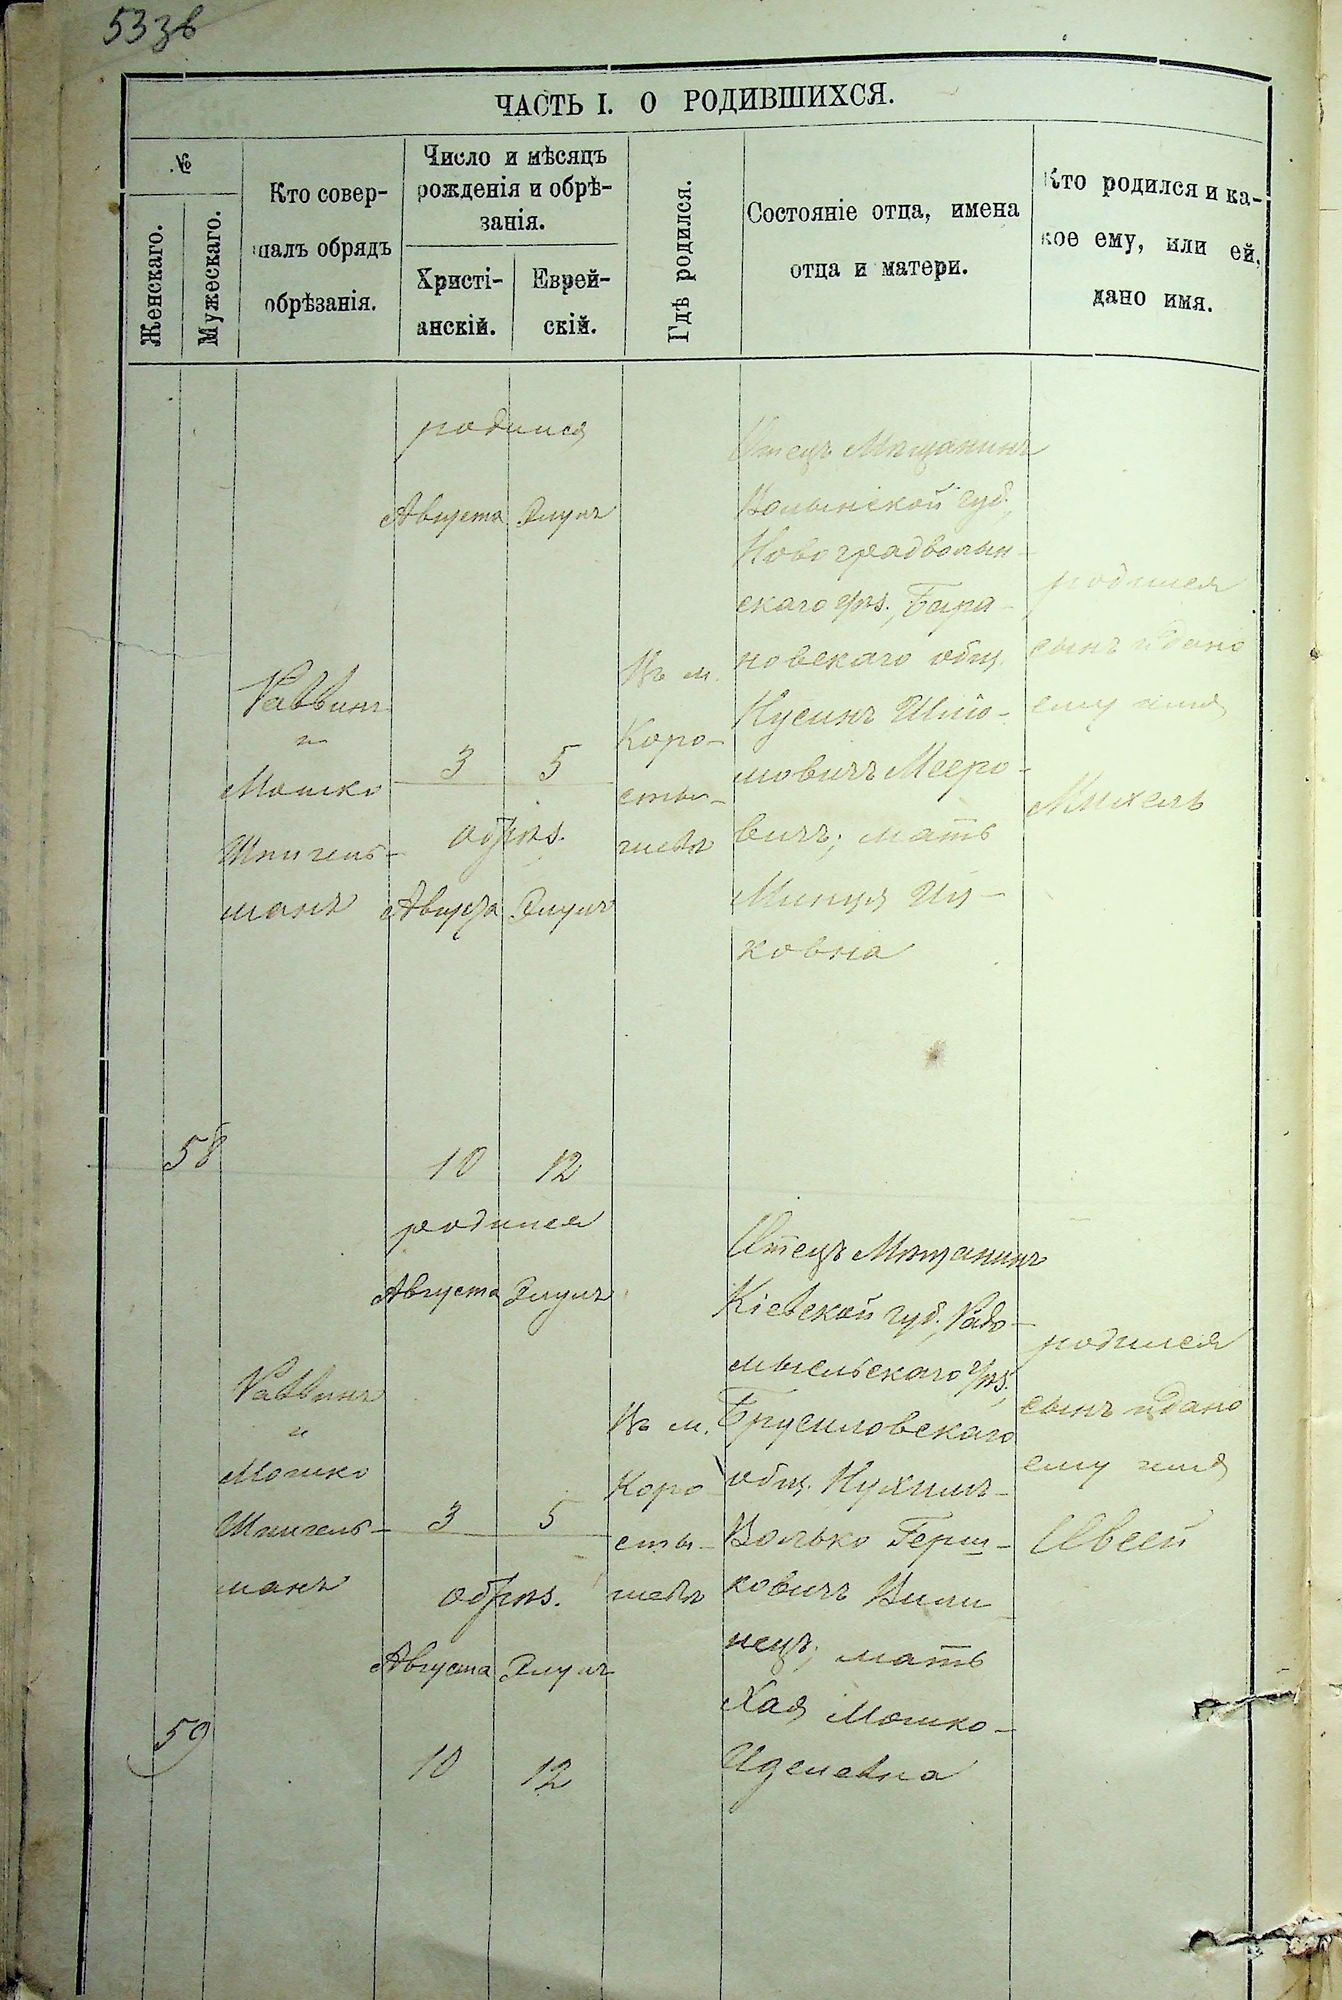 533об
ЧАСТЬ I. О РОДИВШИХСЯ.
№
Женскаго.
Мужескаго.
Кто совер-
шалъ обрядъ
обрѣзанія.
Число и мѣсяцъ
рожденія и обрѣ-
занія.
Христі-
анскій.
Еврей-
скій.
Гдѣ родился.
Состояніе отца, имена
отца и матери.
Кто родился и ка-
кое ему, или ей,
дано имя.
58
Раввинъ
и
Мошко
Шпигель-
манъ
родился
Августа Элулъ
3 5
обрѣз.
Августа Элулъ
10 12
Въ м.
Коро-
сты-
шевѣ
Отецъ Мѣщанинъ
Волынской губ.,
Новоградволын-
скаго уѣз., Бара-
новскаго общ.
Нусинъ Шлio-
мовичъ Мееро-
вичъ; мать
Минця Иц-
ковна
родился
сынъ и дано
ему имя
Михель
59
Раввинъ
и
Мошко
Шпигель-
манъ
родился
Августа Элулъ
3 5
обрѣз.
Августа Элулъ
10 12
Въ м.
Коро
сты-
шевѣ
Отецъ Мѣщанинъ
Кіевской губ., Радо-
мысльскаго уѣз.,
Брусиловскаго
общ. Нухимъ-
Волько Герш-
ковичъ Вили-
нецъ; мать
Хая Мошко-
Иделевна
родился
сынъ и дано
ему имя
Овсей